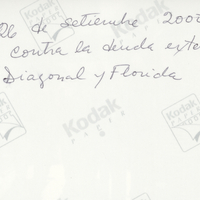 26 de setiembre 200
contra la deuda exte
Diagonal y Florida
Kodak
Kodak
Kodak